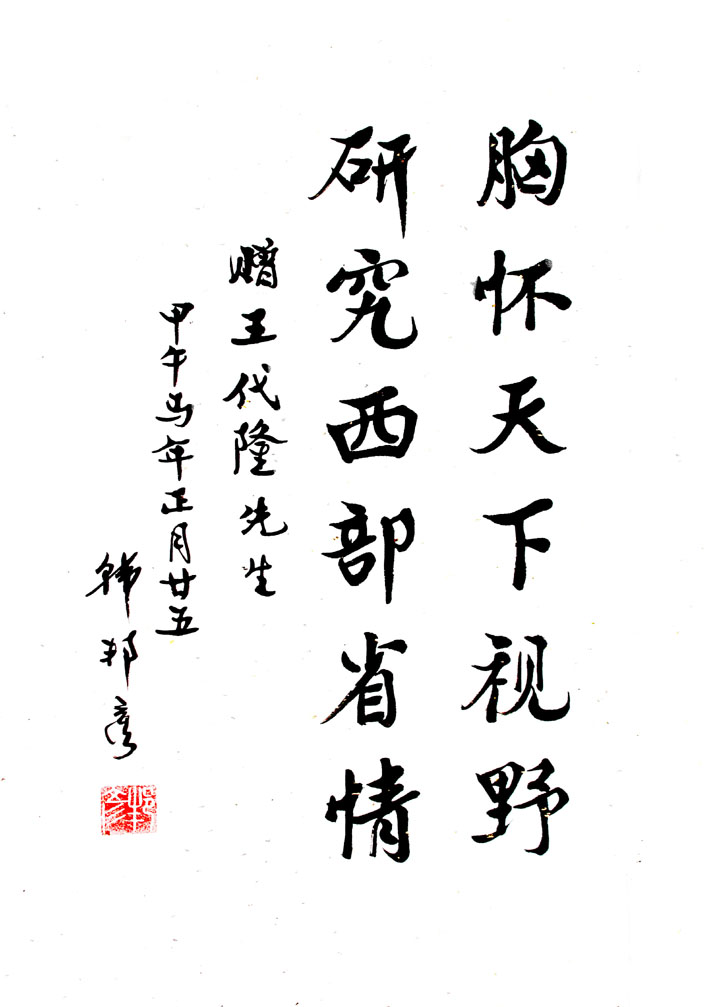 胸怀天下视野
研究西部省情
赠王代隆先生
甲午马年正月廿五
韩邦彦